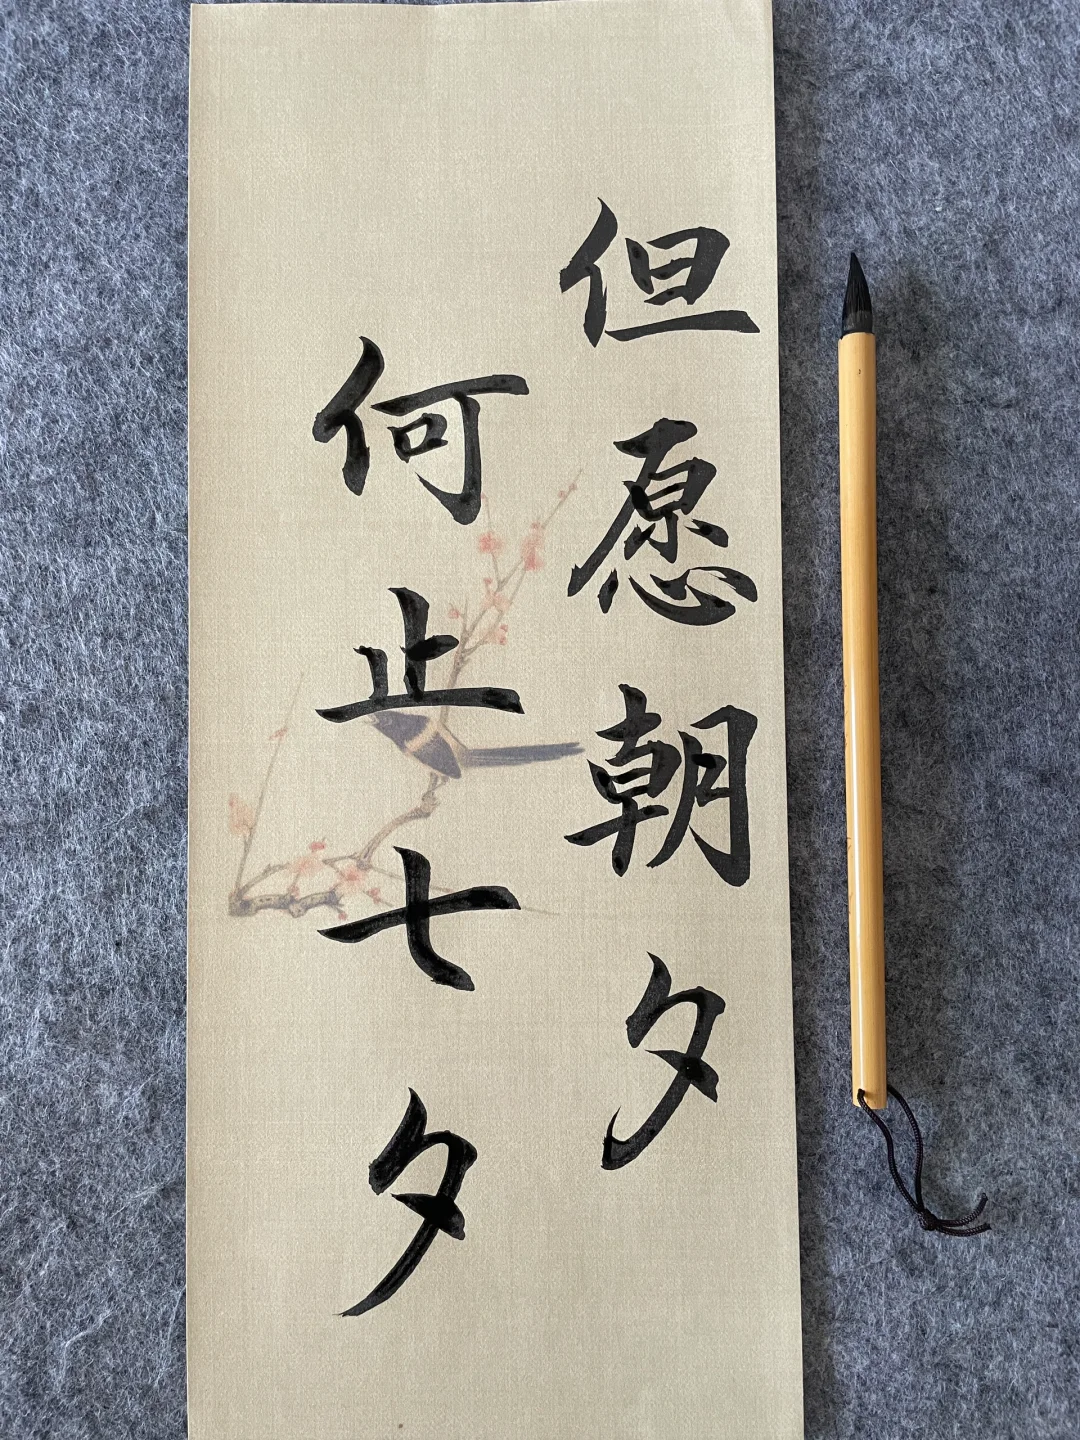 但愿朝夕
何止七夕